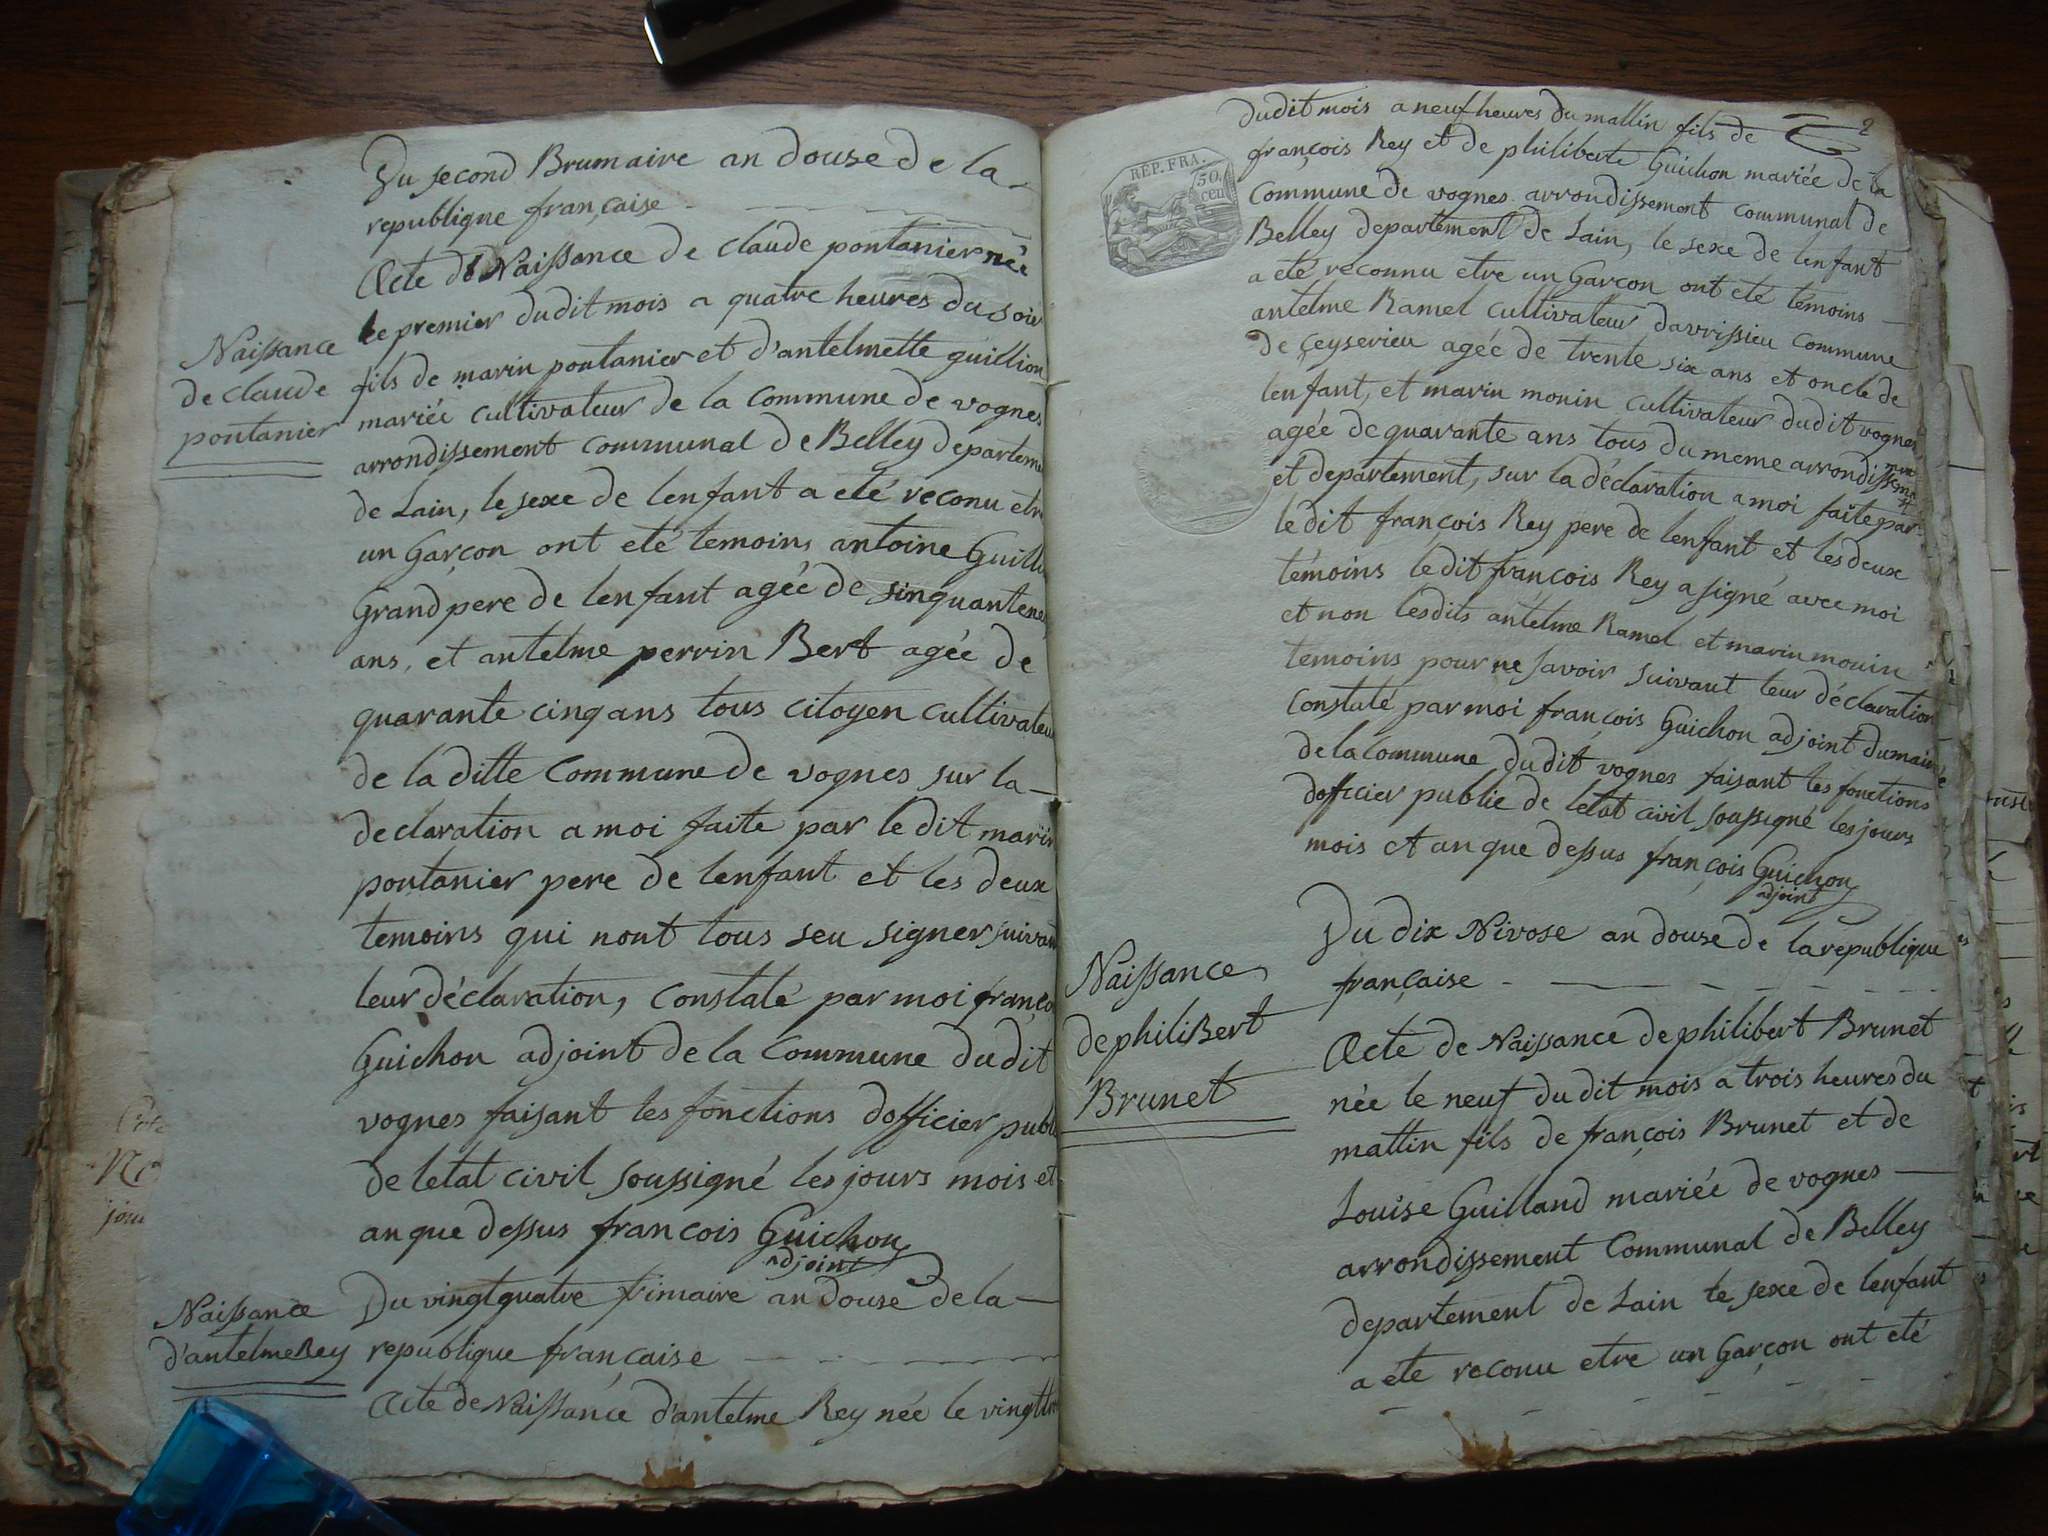 Du second Brumaire an douse de la
republique française
Acte de Naissance de Claude pontanier née
le premier dudit mois a quatre heures du soir
Naissance
de claude
pontanier
fils de marin pontanier et d'antelmette guillion
mariée cultivateur de la Commune de vognes
arrondissement communal de Belley departeme
de Lain, le sexe de lenfant a eté reconu etre
un Garçon ont eté temoins antoine Guill
Grand pere de lenfant agée de sinquante
ans, et antelme perrin Bert agée de
quarante cinq ans tous citoyen cultivateu
de la ditte Commune de vognes sur la
declaration a moi faite par le dit marin
pontanier pere de lenfant et les deux
temoins qui nont tous seu signer suivan
leur déclaration, Constaté par moi franço
Guichon adjoint de la Commune dudit
vognes faisant les fonctions dofficier publ
de letat civil soussigné les jours mois et
an que dessus françois Guichon
adjoint
Naissance
d'antelme Rey
Du vingt quatre frimaire an douse de la
republique française
Acte de Naissance d'antelme Rey née le vingt
2
dudit mois a neuf heures du mattin fils de
REP. FRA.
50.
cen
françois Rey et de philiberte Guichon mariée de la
Commune de vognes arrondissement communal de
Belley departement de Lain, le sexe de lenfant
a eté reconnu etre un Garçon ont eté témoins
antelme Ramel cultivateur davrissieu Commune
de Çeyserieu agée de trente six ans et oncle de
lenfant, et marin monin cultivateur dudit vognes
agée de quarante ans tous du meme arrondisseme
et departement, sur la déclaration a moi faite par
le dit françois Rey pere de lenfant et les deux
témoins le dit françois Rey a signé avec moi
et non lesdits antelme Ramel et marin monin
temoins pour ne savoir suivant leur déclaration
Constaté par moi françois Guichon adjoint du maire
de la Commune dudit vognes faisant les fonctions
dofficier public de letat civil soussigné les jours
mois et an que dessus françois Guichon
adjoint
Naissance
de philiBert
Brunet
Du dix Nivose an douse de la republique
française
Acte de Naissance de philibert Brunet
née le neuf du dit mois a trois heures du
mattin fils de françois Brunet et de
Louise Guilland mariée de vognes
arrondissement Communal de Belley
departement de Lain le sexe de lenfant
a ete reconu etre un Garçon ont eté